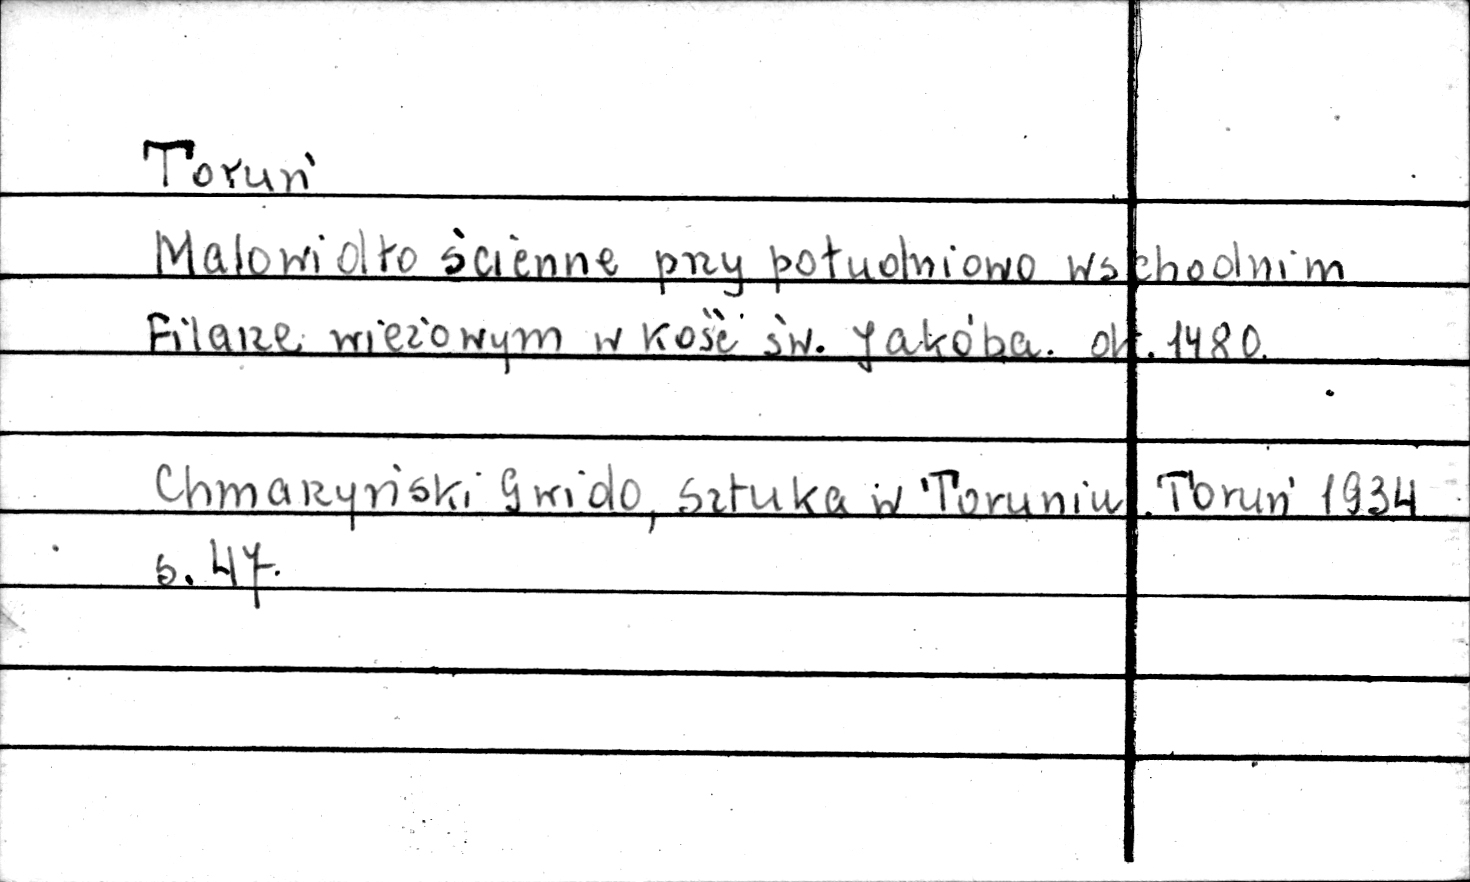 Toruń
Malowidło ścienne przy południowo wschodnim
Filarze wieżowym w kość św. Jakóba. ok. 1480.
Chmarzyński Gwido, Sztuka w Toruniu. Toruń 1934
s. 47.